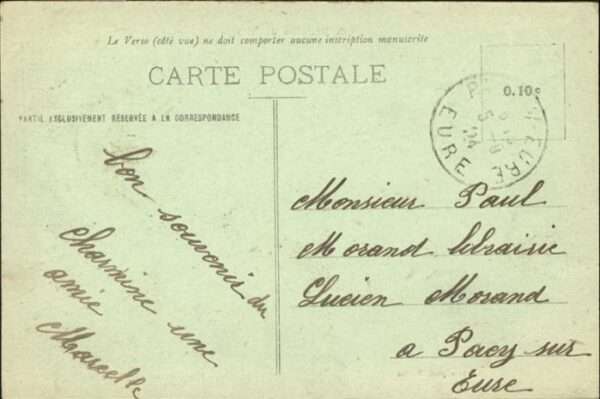 Le Verso (côté vue) ne doit comporter aucune inscription manuscrite
CARTE POSTALE
0.10c
PARTIE EXCLUSIVEMENT RÉSERVÉE A LA CORRESPONDANCE
EURE
EURE
bon souvenir du
Charmine une
amie
Marcelle
Monsieur Paul
Morand librairie
Lucien Morand
a Pacy sur
Eure